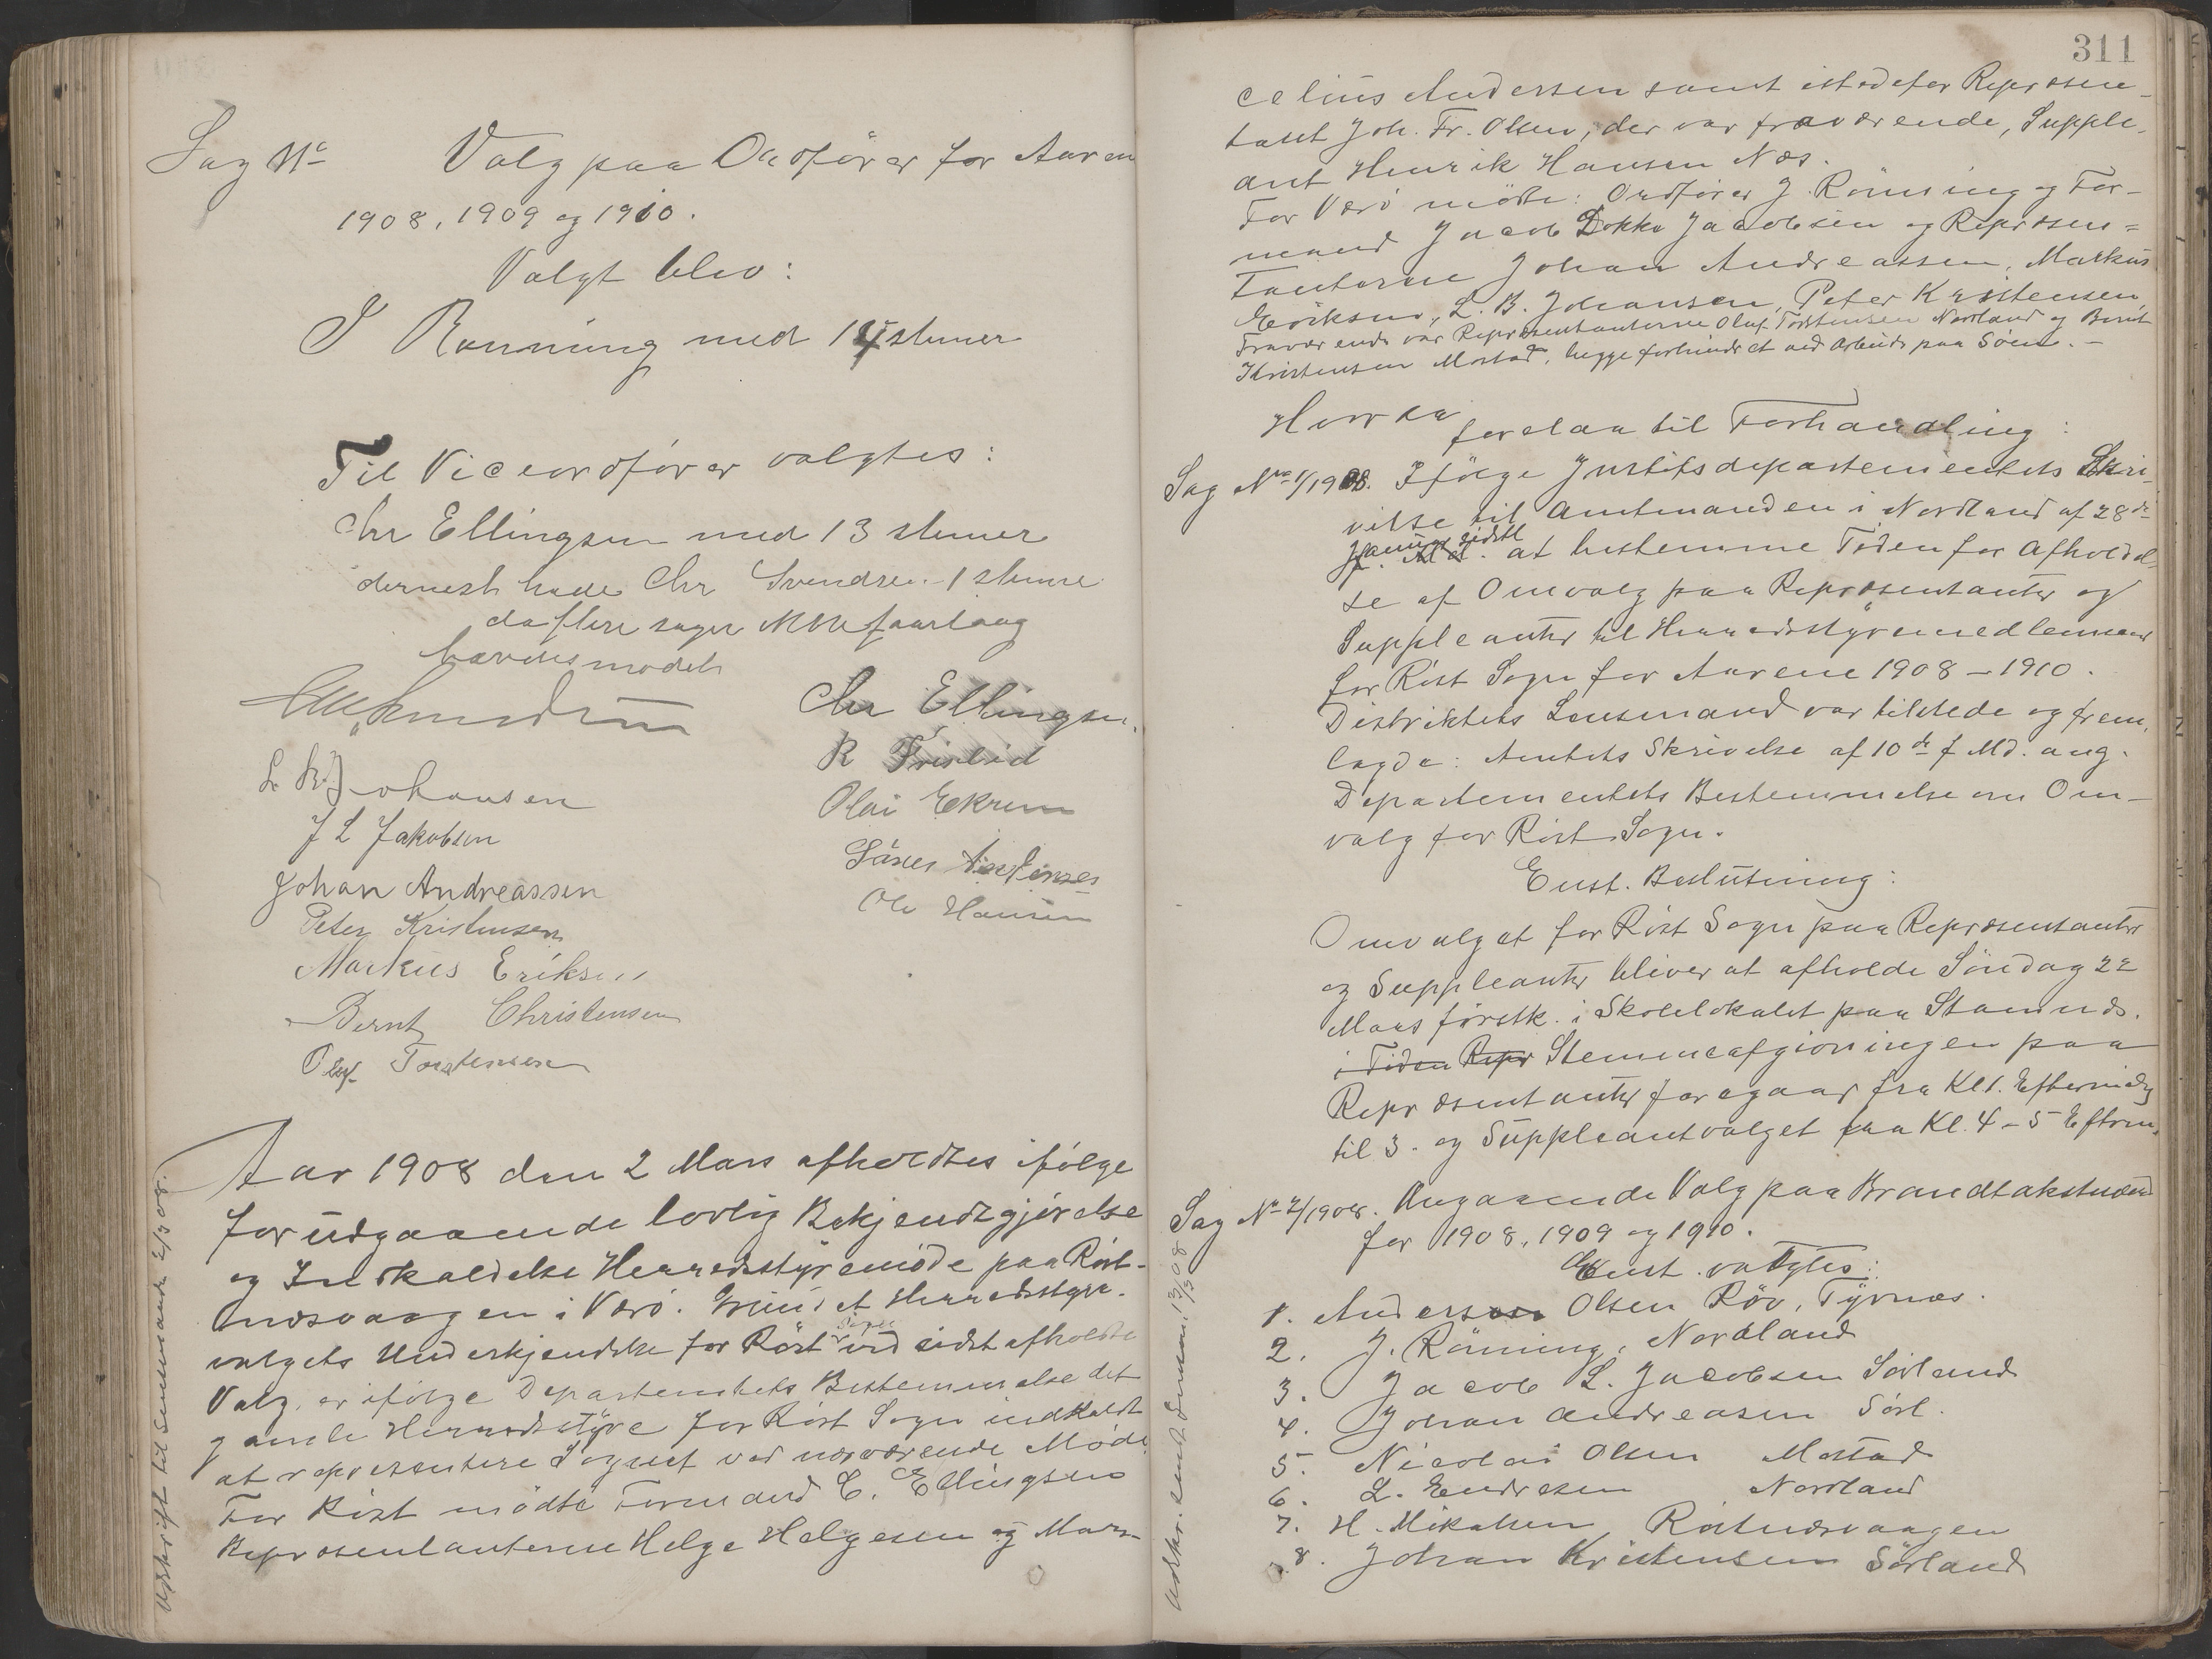 Sag No Valg paa Ordfører for Aarene
1908, 1909 og 1910.
Valgt blev:
J Rønning med 14 stemer
Til Viceordfører valgtes:
Chr Ellingsen med 13 stemer
dernest hade Chr Svendsen 1 stemme
da flere sager ikke forelaag
hævedes mødet
Chr Ellingsen
L B Johansen
J L Jakobsen
Olai Ekrem
Johan Andreassen
Peter Kristensen
Ole Hansen
Markus Eriksen
Bernt Christensen
Oluf Torstensen
Aar 1908 den 2 Mars afholdtes ifølge
forudgaaende lovlig Bekjendtgjørelse
og Indkaldelse Herredsstyremøde paa Røst-
næsvaagen i Værø. Grundet Herredsstyre-
valgets Underkjendelse for Røst Sogn ved sidst afholdte
Valg, er ifølge Departemetets Bestemmelse det
gamle Herredsstyre for Røst Sogn indkaldt
at representere Sognet ved nærværende Møde.
For Røst mødte Formand C. Ellingsen
Repræsentanterne Helge Helgesen og Mar-
Udskrift til Lensmand 2/3 08.
311
celius Andersen samt istedefor Repræsen-
tant Joh. Fr. Olsen, der var fraværende, Supple-
ant Henrik Hansen Næs.
For Værø mødte: Ordfører J. Rønning og For-
mand Jacob Jacobsen og Repræsen=
tanterne Johan Andreassen, Markus
Eriksen, L. B. Johansen, Peter Kristensen,
Fraværende var Repræsentanterne Oluf Torstensen Nordland og Bernt
Khristensen Mostad, begge forhindret ved Arbeide paa Søen. -
Hvorda
forelaa til Forhandling:
Sag No 1/1908. Ifølge Justitsdepartementets Skri-
velse til Amtmanden i Nordland af 28de
Januar sidstl. at bestemme Tiden for Afholdel-
se af Omvalg paa Repræsentanter og
Suppleanter til Herredsstyremedlemmer
for Røst Sogn for Aarene 1908 - 1910.
Distriktets Lensmand var tilstede og frem-
lagde: Amtets Skrivelse af 10de f Md. ang.
Departementets Bestemmelse om Om-
valg for Røst Sogn.
Enst. Beslutning:
Omvalget for Røst Sogn paa Repræsentanter
og Suppleanter bliver at afholde Søndag 22
Mars førstk. i Skolelokalet paa
i Tiden Repr Stemmeafgivningen paa
Repræsentanter foregaar fra Kl 1. Eftermidg
til 3. og Suppleantvalget fra Kl. 4 - 5 Efterm.
Sag No 2/1908. Angaaende Valg paa Brandtakstmænd
for 1908, 1909 og 1910.
Enst. valgtes:
1. Anders Olsen Røv, Tyvnæs.
2. J. Rønning, Nordland
3. Jacob L. Jacobsen Sørland
4. Johan Andreasen Sørl.
5. Nicolai Olsen Mostad
6. L. Endresen Nordland
7. H. Mikalsen, Røstnæsvaagen
8. Johan Kristensen Sørland